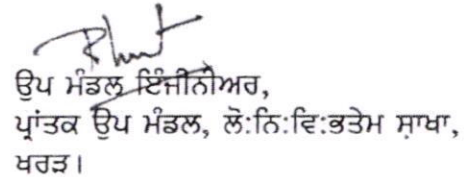 ਉਪ ਮੰਡਲ ਇੰਜੀਨੀਅਰ,
ਪ੍ਰਾਂਤਕ ਉਪ ਮੰਡਲ, ਲੋ:ਨਿ:ਵਿ:ਭਤੇਮ ਸ਼ਾਖਾ,
ਖਰੜ।